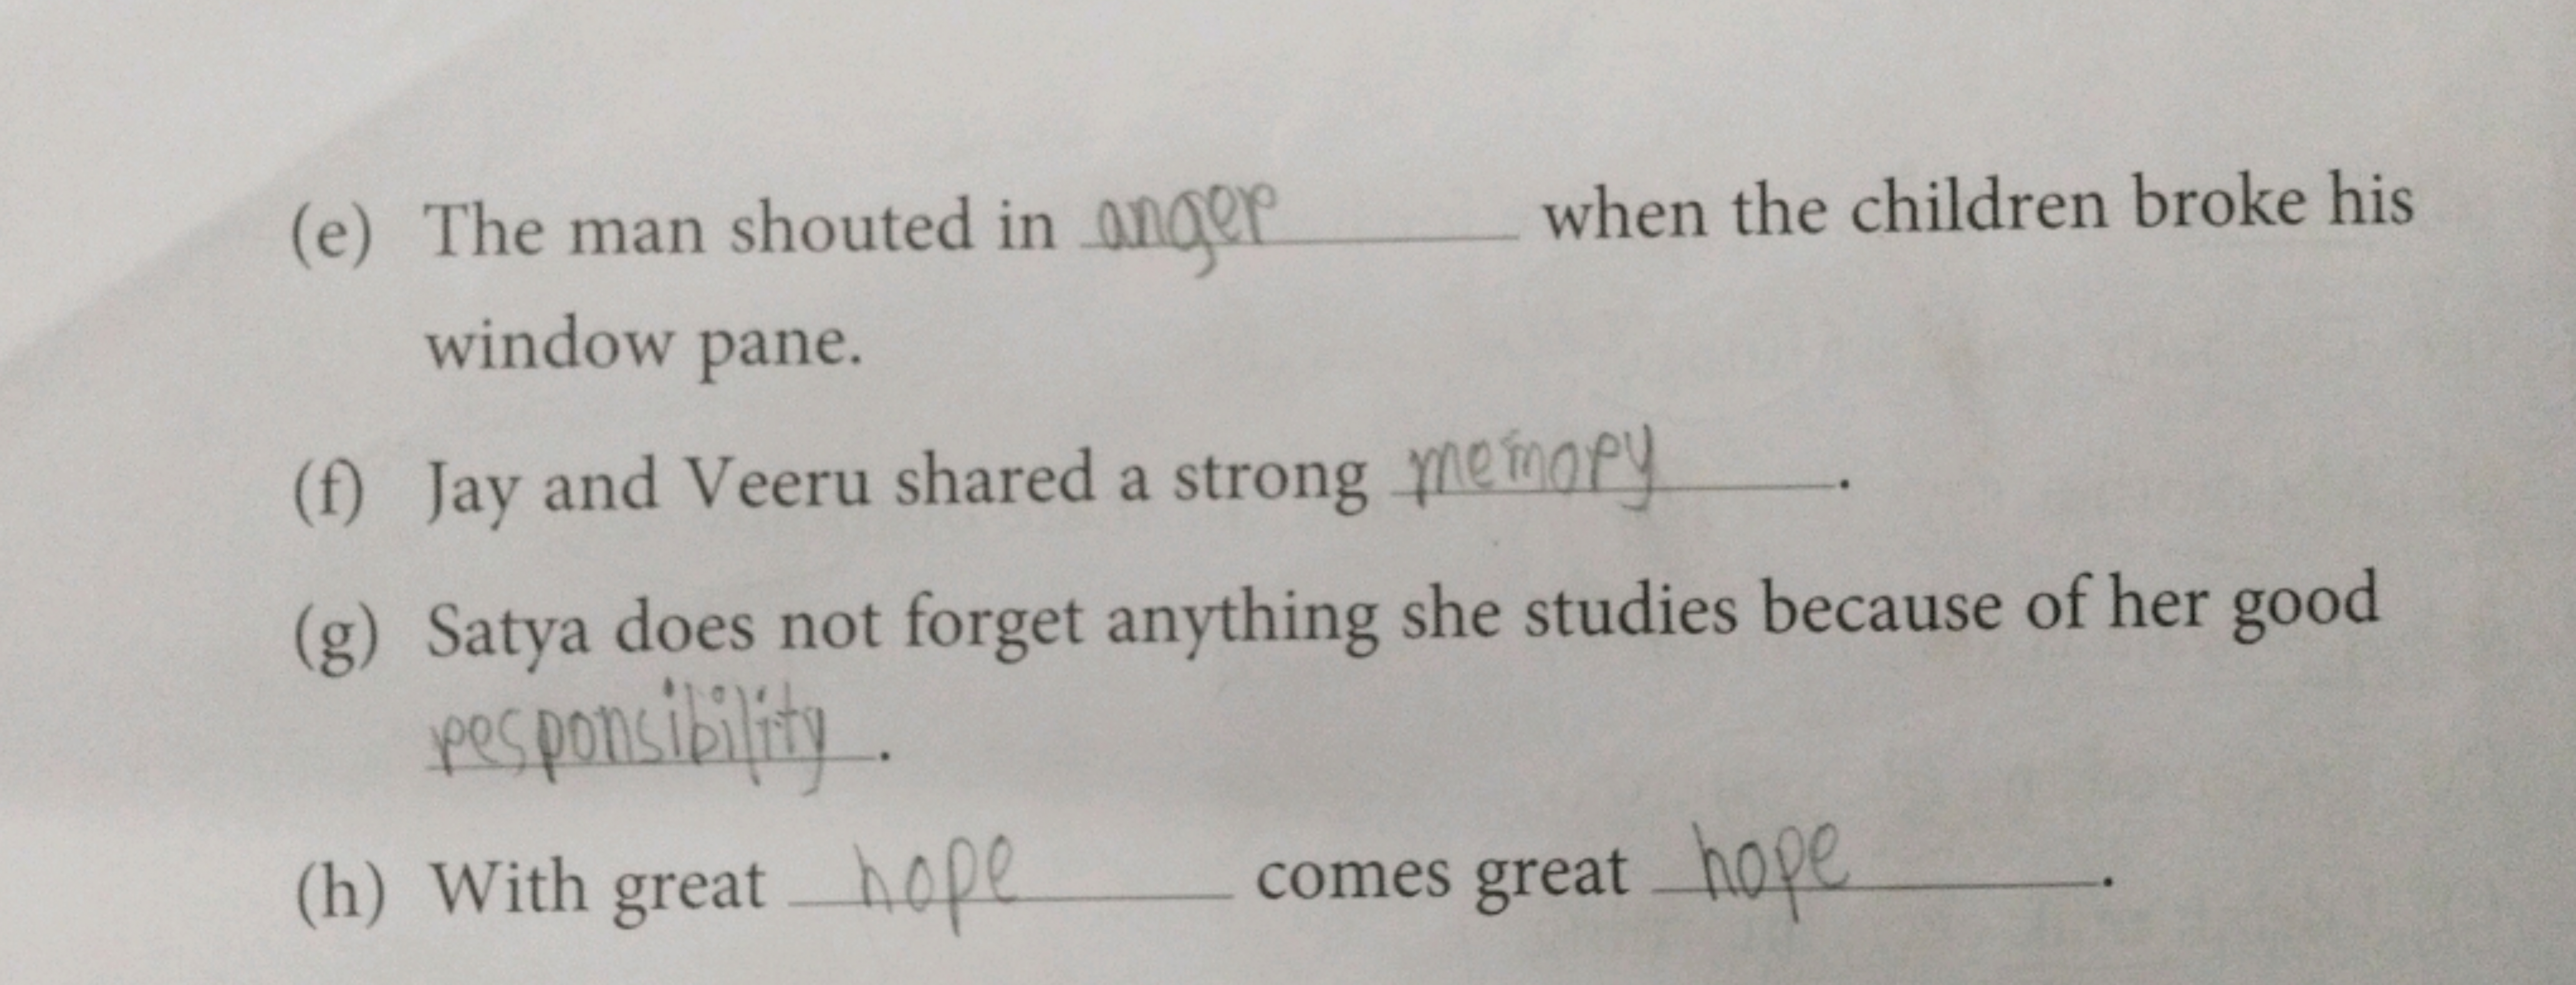 (e) The man shouted in anger when the children broke his
window pane.
(f) Jay and Veeru shared a strong memory.
(g) Satya does not forget anything she studies because of her good
responsibility.
(h) With great hope comes great hope.